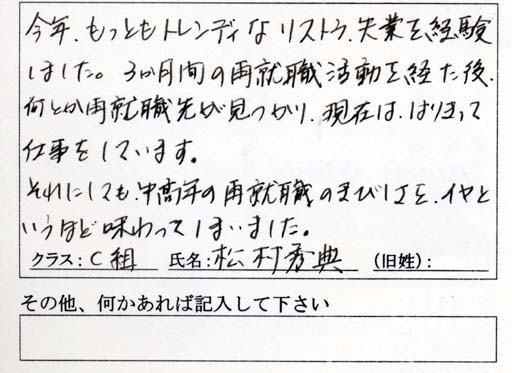 今年、もっともトレンディなリストラ、失業を経験
しました。3か月間の再就職活動を経た後、
何とか再就職先が見つかり、現在は、はりきって
仕事をしています。
それにしても、中高年の再就職のきびしさを、イヤと
いうほど味わってしまいました。
クラス：C組　氏名：松村秀典　（旧姓）：
その他、何かあれば記入して下さい